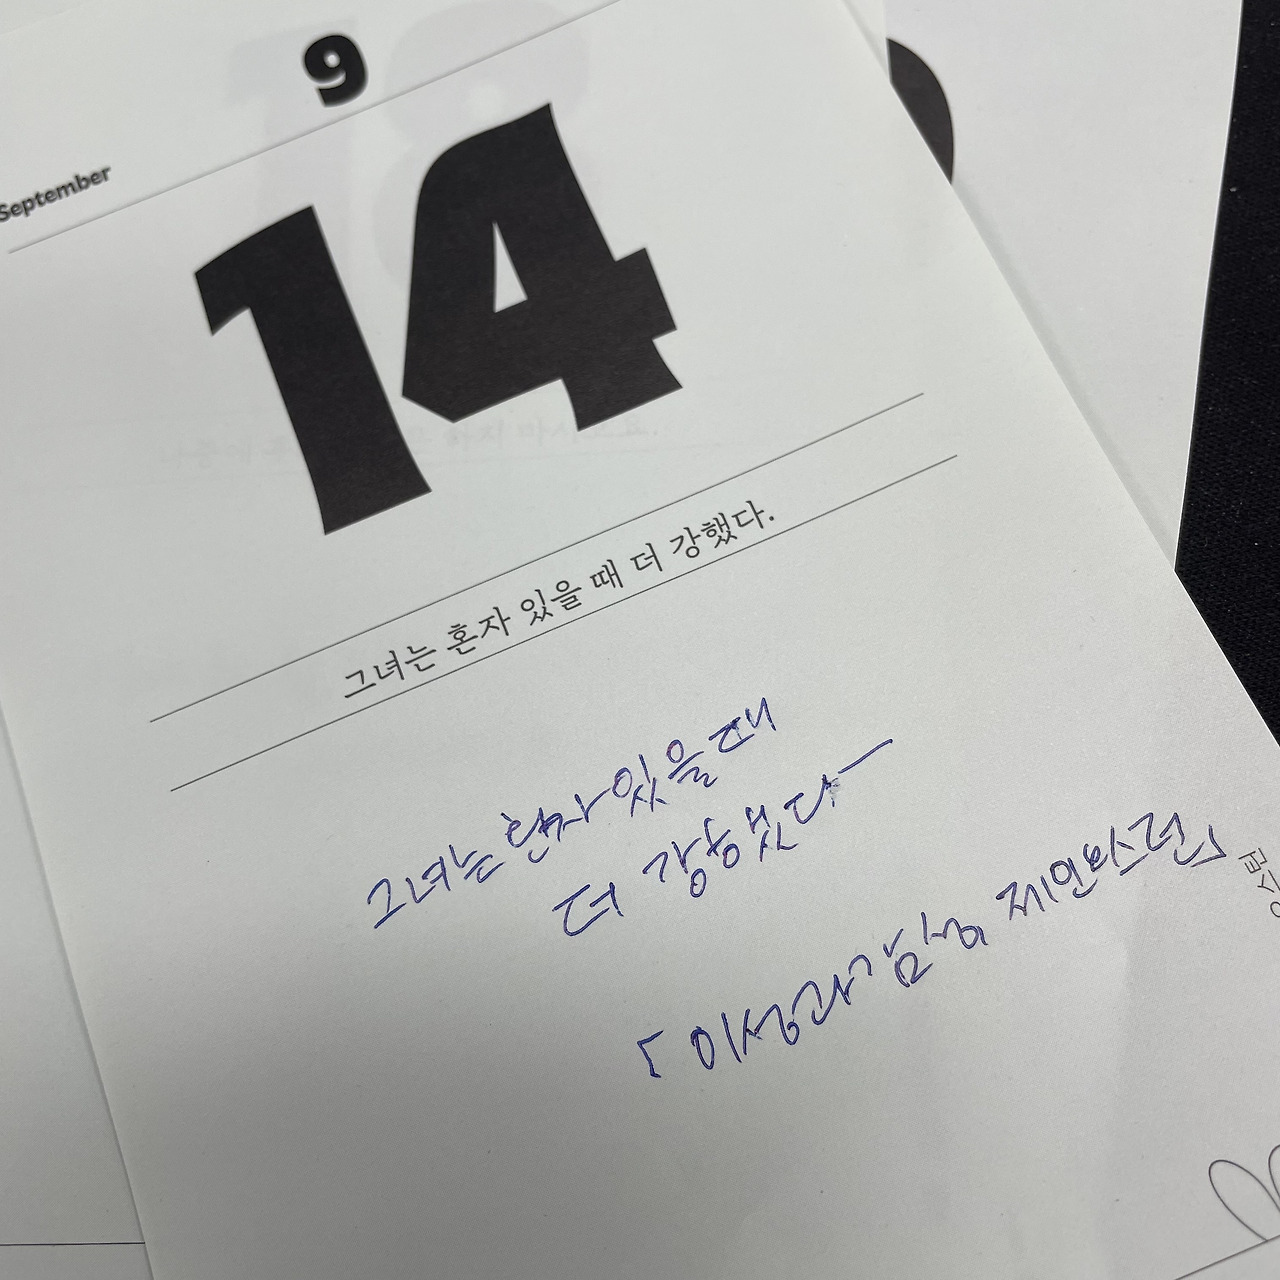 9
September
14
그녀는 혼자 있을 때 더 강했다.
그녀는 혼자 있을 때
더 강했다
「이성과 감성, 제인오스틴」